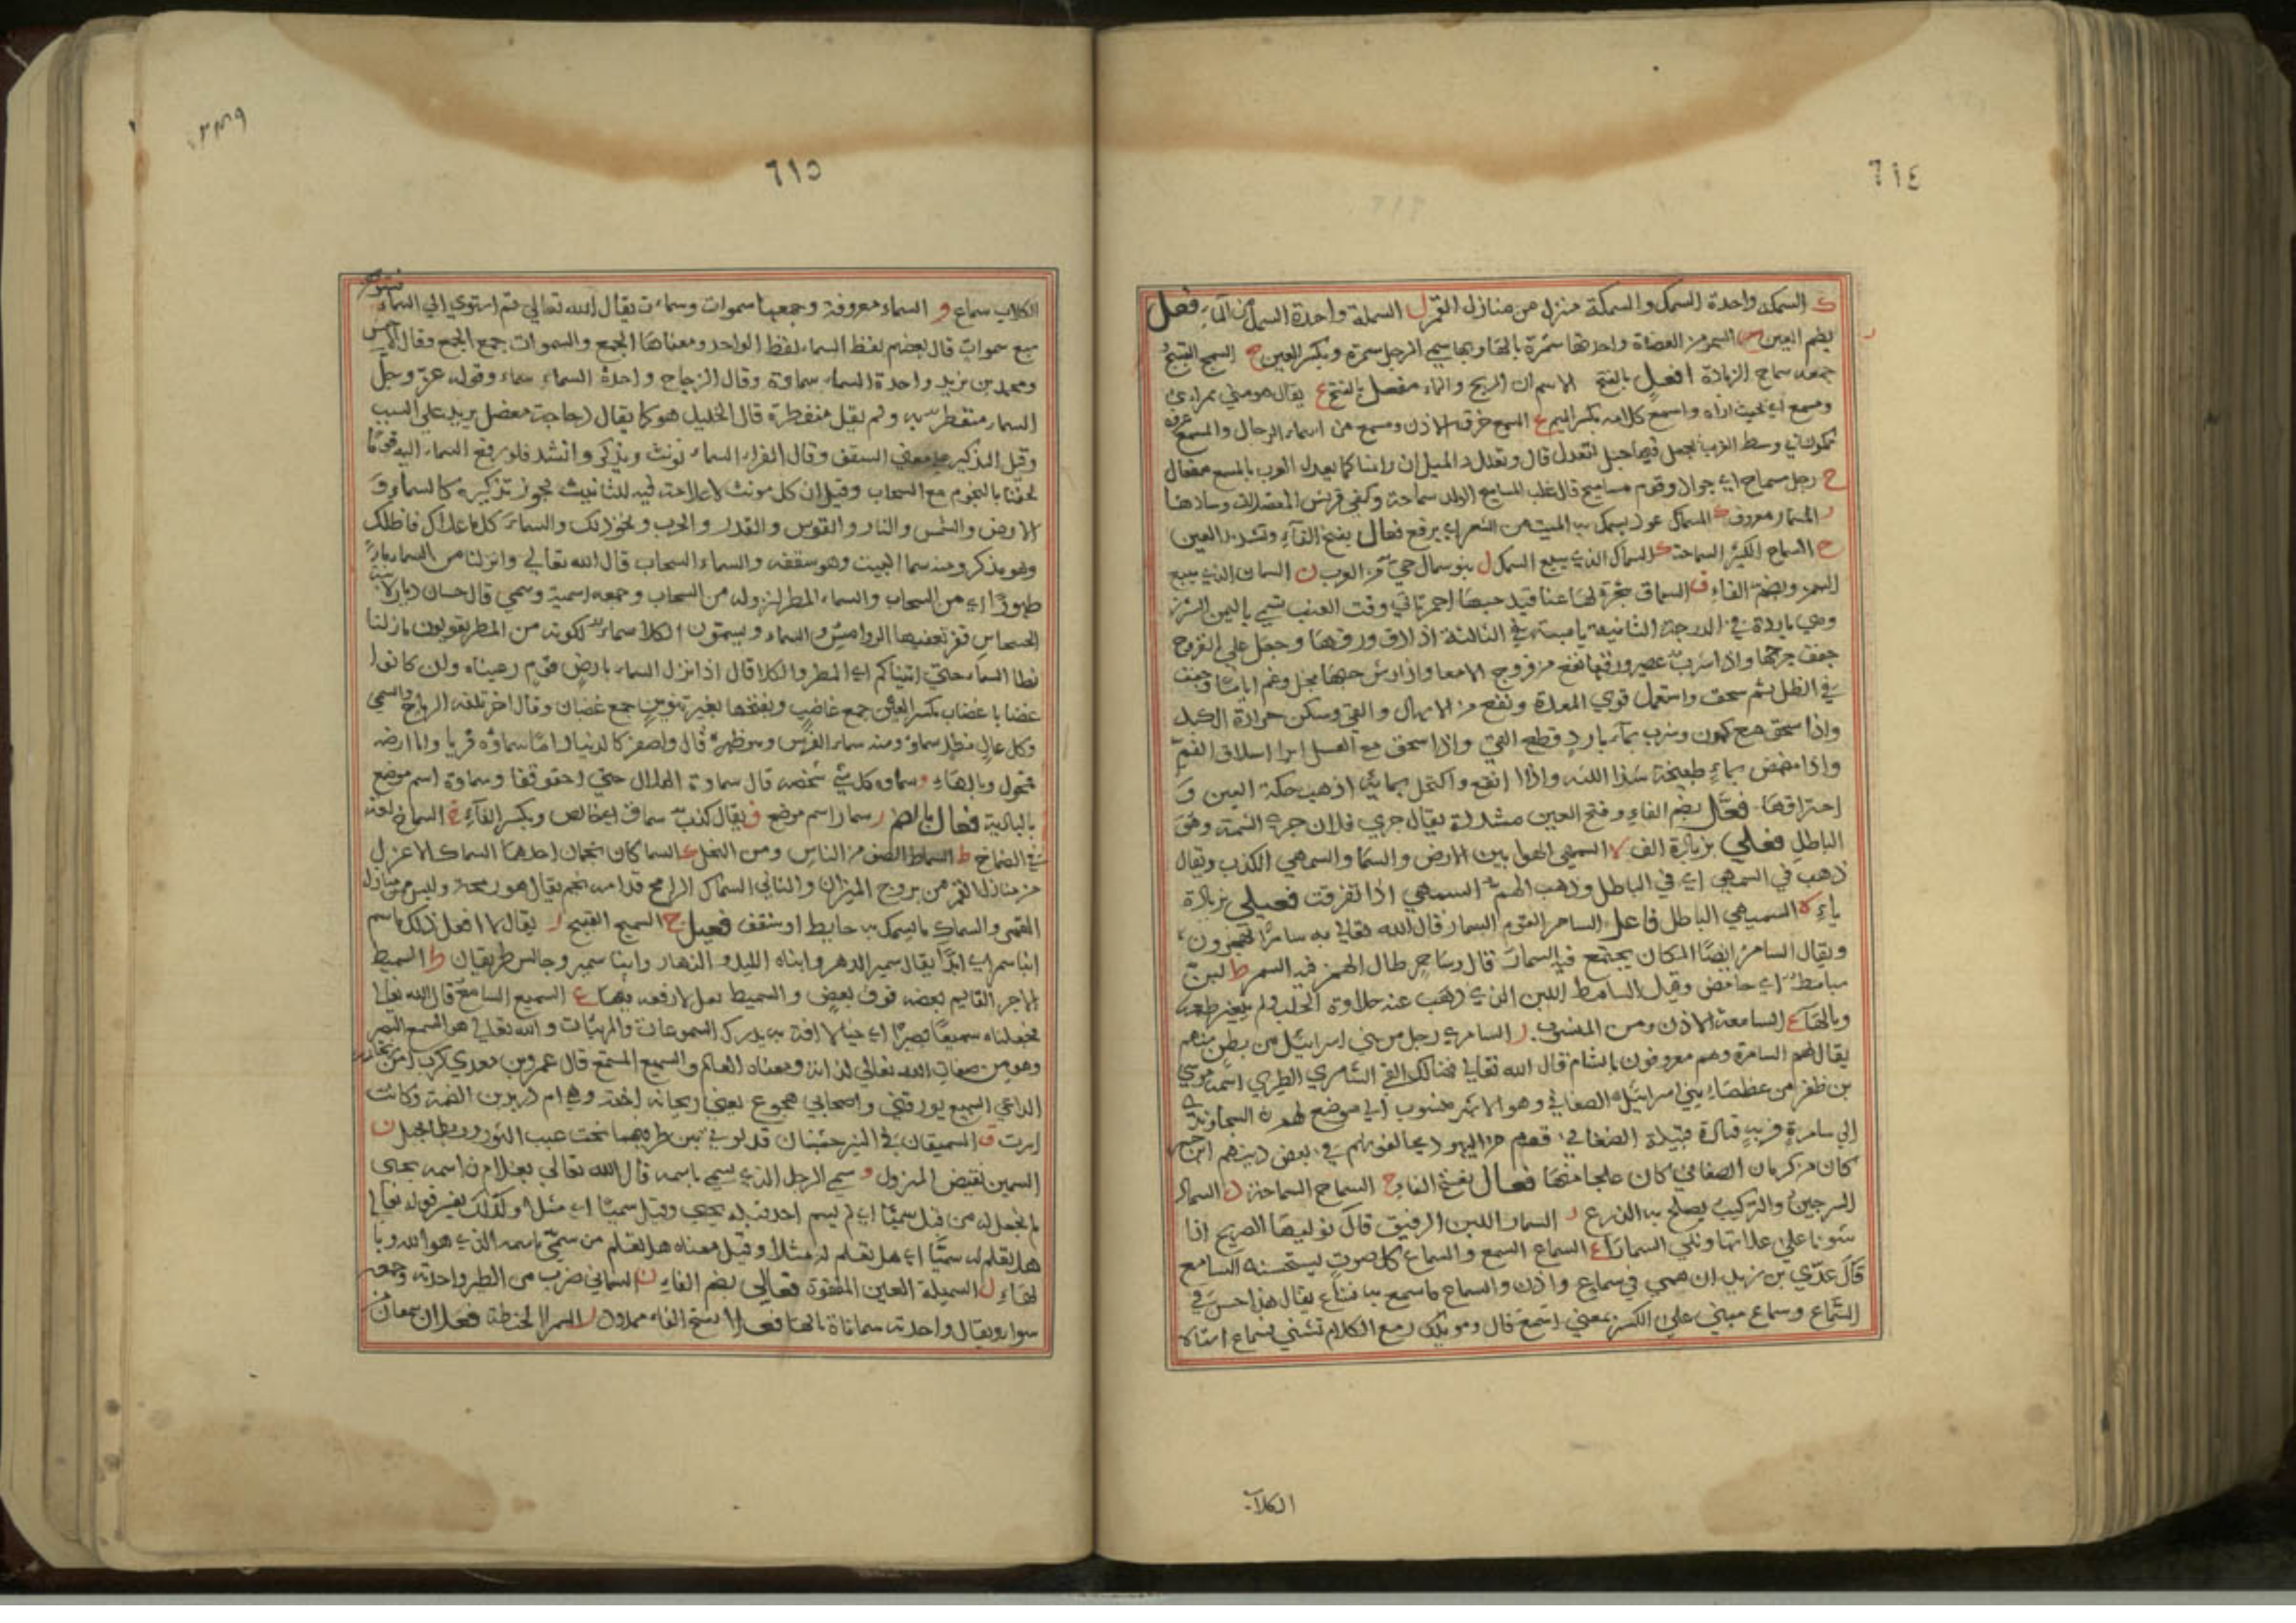 ٦١٤
ك السمكة واحدة السمك والسمكة منزل من منازل القمر ل السملة واحدة السمل من الماء فعل
بضم العين س السمر من العضاة واحدتها سمرة بالهاء وبها سمي الرجل سمرة وبكسر العين ج السمج القبيح
جمعه سماج الزيادة افعل بالفتح الاسمران الريح والماء مفعل بالفتح ع يقال هو مني بمراى
ومسمع اي بحيث اراه واسمع كلامه بكسر الميم ع المسمع خرق الاذن ومسمع من اسماء الرجال والمسمع عروة
تكون في وسط الغرب يجعل فيها حبل لتعدل قال ونعدل ذا الميل ان رامنا كما يعدل الغرب بالمسمع مفعال
ح رجل مسماح اي جواد وقوم مساميح قال غلب المساميح الوليد سماحة وكفى قريش المعضلات وسادها
ر المسمار معروف ك المسماك عود يسمك به البيت من الشعر اي يرفع فعال بفتح الفاء وتشديد العين
ح السماح الكثير السماحة ك السماك الذي يبيع السمك ل بنو سمال حي من العرب ن السمان الذي يبيع
السمن وبضم الفاء ق السماق شجرة لها عناقيد حبها احمر تاتي وقت العنب تسمى باليمن العترز
وهي باردة في الدرجة الثانية يابسة في الثالثة اذا دق ورقها وجعل على القروح
جفف جرحها واذا شرب عصير ورقها نفع من قروح الامعا واذا رش حبها بخل وغم اياما وجفف
في الظل ثم سحق واستعمل قوى المعدة ونفع من الاسهال والقي وسكن حرارة الكبد
واذا سحق مع كمون وشرب بماء بارد قطع القي واذا سحق مع العسل ابرا اسلاق الفم
واذا مضمض بماء طبيخه شد اللثه واذا انقع واكتحل بمائه اذهب حكة العين و
احتراقها فعل بضم الفاء وفتح العين مشددة يقال جرى فلان جري السمه وهي
الباطل فعلى بزيادة الف ه السمهى الهوا بين الارض والسما والسمهى الكذب ويقال
ذهب في السمهى اي في الباطل وذهب ابلهم السمهى اذا تفرقت فعيلى بزيادة
ياء ه السميهى الباطل فاعل ر السامر القوم السمار قال الله تعالى به سامرا تهجرون
ويقال السامر ايضا المكان يجتمع فيه السمار قال وسامر طال لهم فيه السمر ط لبن
سامط اي حامض وقيل السامط اللبن الذي ذهب عنه حلاوة الحلب ولم يتغير طعمه
وبالهاء ع السامعة الاذن ومن المنسوب ر السامري رجل من بني اسرائيل من بطن منهم
يقال لهم السامرة وهم معروفون بالشام قال الله تعالى فكذلك القى السامري الطبري اسمه موسى
بن ظفر من عظماء بني اسرائيل الصغاني وهو الاشهر منسوب الى موضع لهم
الى سامرة قرية قتادة قبيلة الصغاني قوم من اليهود يخالفونهم في بعض دينهم ابن جبير
كان من كرمان الصغاني كان علجا منها فعال بفتح الفاء ح السماح السماحة د السماد
السرجين والتركيب يصلح به الزرع ر السمار اللبن الرقيق قال نوليها الصريح اذا
شتونا على علاتها ونلي السمارا ع السماع السمع والسماع كل صوت يستحسنه السامع
قال عدي بن زيد ان همي في سماع واذن والسماع ما سمع به فشاع يقال هذا حسن في
السماع وسماع مبني على الكسر بمعنى اسمع قال ومويلك زمع الكلاب تسبني فسماع استاه
الكلاب
٦١٥
الكلاب سماع و السماء معروفة وجمعها سموات وسماءت يقال الله تعالى ثم استوى الى السماء فسواهن
سبع سموات قال بعضهم لفظ السماء لفظ الواحد ومعناها الجمع والسموات جمع الجمع وقال الاخفش
ومحمد بن يزيد واحدة السماء سماوة وقال الزجاج واحدة السماء سماءة وقوله عز وجل
السماء منفطر به ولم يقل منفطرة قال الخليل هو كما يقال دجاجة معضل يريد على النسب
وقيل التذكير على معنى السقف وقال الفراء السماء تونث وتذكر وانشد فلو رفع السماء اليه قوما
لحقنا بالنجوم مع السحاب وقيل ان كل مونث لا علامة فيه للتانيث يجوز تذكيره كالسماء و
الارض والشمس والنار والقوس والقدر والحرب ونحو ذلك والسماء كل ما علاك فاظلك
وهو مذكر ومنه سما البيت وهو سقفه والسماء السحاب قال الله تعالى وانزلنا من السماء ماء
طهورا اي من السحاب والسماء المطر لنزوله من السحاب وجمعه اسمية وسمي قال حسان ديار من بني
الحسحاس قفر تعفيها الروامس والسماء ويسمون الكلا سماء لكونه من المطر يقولون ما زلنا
نطا السماء حتى اتيناكم اي المطر والكلا قال اذا نزل السماء بارض قوم رعيناه وان كانوا
غضابا غضاب بكسر الغين جمع غاضب وبفتحها بغير تنوين جمع غضبان وقال اخر تلفه الرياح والسمي
وكل عال مظل سماء ومنه سماء الفرس وهو ظهره قال واصفر كالدينار اما سماؤه فريا واما ارضه
فمحول وبالهاء و سماوة كل شي شخصه قال سماوة الهلال حتى احقوقفا وسماوة اسم موضع
بالبادية فعال بالضم ر سمار اسم موضع ق يقال كذب سماق اي خالص وبكسر الفاء خ السماخ لغة
في الصماخ ط السماط الصف من الناس ومن النخل ك السماكان نجمان احدهما السماك الاعزل
من منازل القمر من بروج الميزان والثاني السماك الرامح قدامه نجم يقال هو رمحه وليس من منازل
القمر والسماك ما يسمك به حايط او سقف فعيل ج السميج القبيح ر يقال لا افعل ذلك ما سمر
ابنا سمير اي ابدا يقال سمير الدهر وابناه الليل والنهار وابنا سمير وجالس طريقان ط السميط
الاجر القايم بعضه فوق بعض والسميط نعل لا رقعة فيها ع السميع السامع قال الله تعالى
فجعلناه سميعا بصيرا اي حيا لا افة به يدرك المسموعات والمرئيات والله تعالى هو السميع البصير
وهو من صفات الله تعالى لذاته ومعناه العالم والسميع المسمع قال عمرو بن معدي كرب امن ريحانة
الداعي السميع يورقني واصحابي هجوع يعني ريحانة اخته وهي ام دريد بن الصمة وكانت
اسرت ق السميقان في النير خشبتان قد لوقي بين طرفيهما تحت غبب الثور وربطا بحبل ن
السمين نقيض المهزول و سمي الرجل الذي يسمى باسمه قال الله تعالى بغلام اسمه يحيى
لم نجعل له من قبل سميا اي لم يسم احد قبله يحيى وقيل سميا اي مثلا وكذلك يفسر قوله تعالى
هل تعلم له سميا اي هل تعلم له مثلا وقيل معناه هل تعلم من سمي باسمه الذي هو الله وبا
لهاء ل السميلة العين المفقوة فعالى بضم الفاء ن السمانى ضرب من الطير واحدته وجمعه
سواء ويقال واحدته سماناة بالهاء فعلاء بفتح الفاء ممدود ر السمراء الحنطة فعلان سمعان من